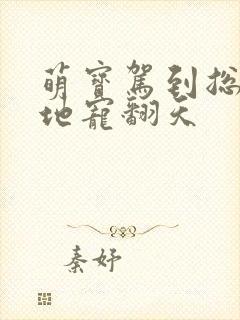 萌寶駕到总
地寵翻天
秦妤